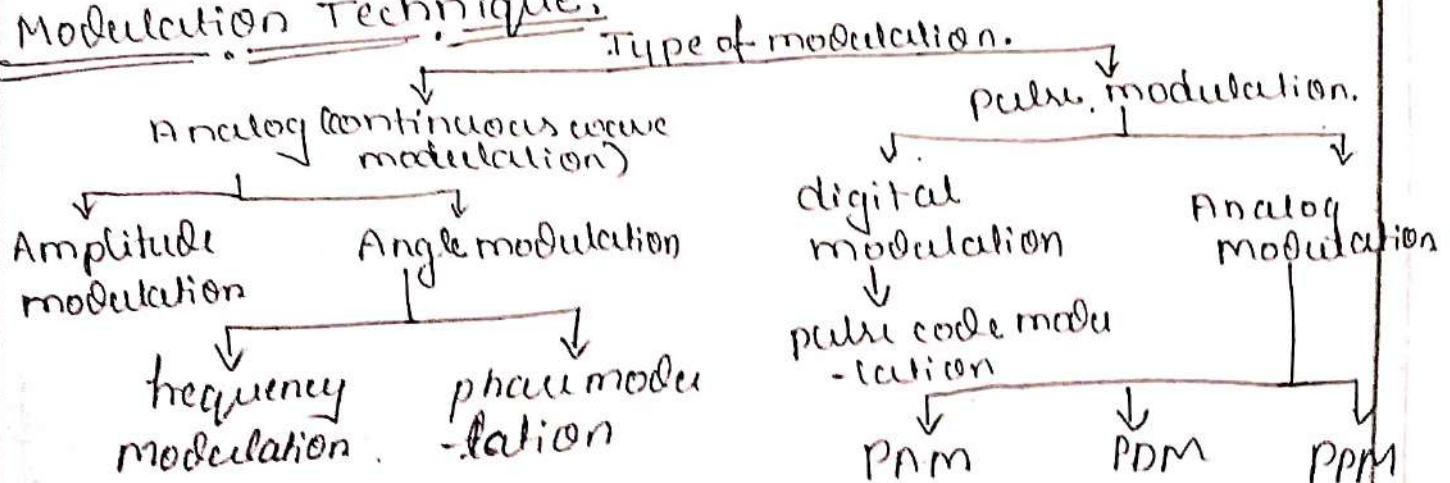 Modulation Technique.
Type of modulation.
Analog (continuous wave
modulation)
pulse. modulation.
Amplitude
modulation
Angle modulation
digital
modulation
Analog
modulation
frequency
modulation.
phase modu
-lation
pulse code modu
-lation
PAM
PDM
PPM